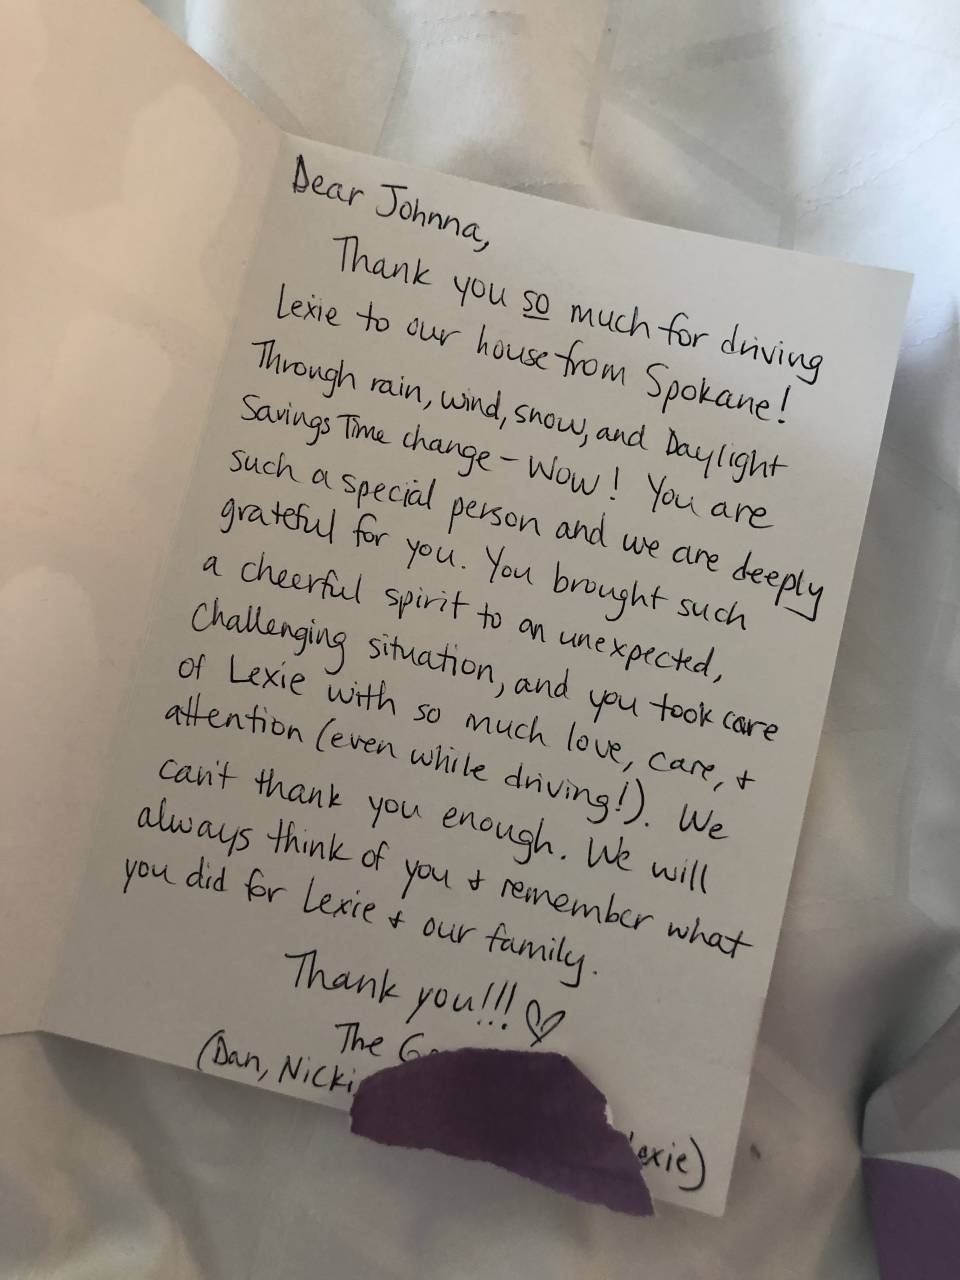 Dear Johnna,
Thank you so much for driving
Lexie to our house from Spokane!
Through rain, wind, snow, and Daylight
Savings Time change - Wow! You are
such a special person and we are deeply
grateful for you. You brought such
a cheerful spirit to an unexpected,
challenging situation, and you took care
of Lexie with so much love, care, +
attention (even while driving!). We
can't thank you enough. We will
always think of you + remember what
you did for Lexie + our family.
Thank you!!! ♡
The
(Dan, Nicki,
Lexie)